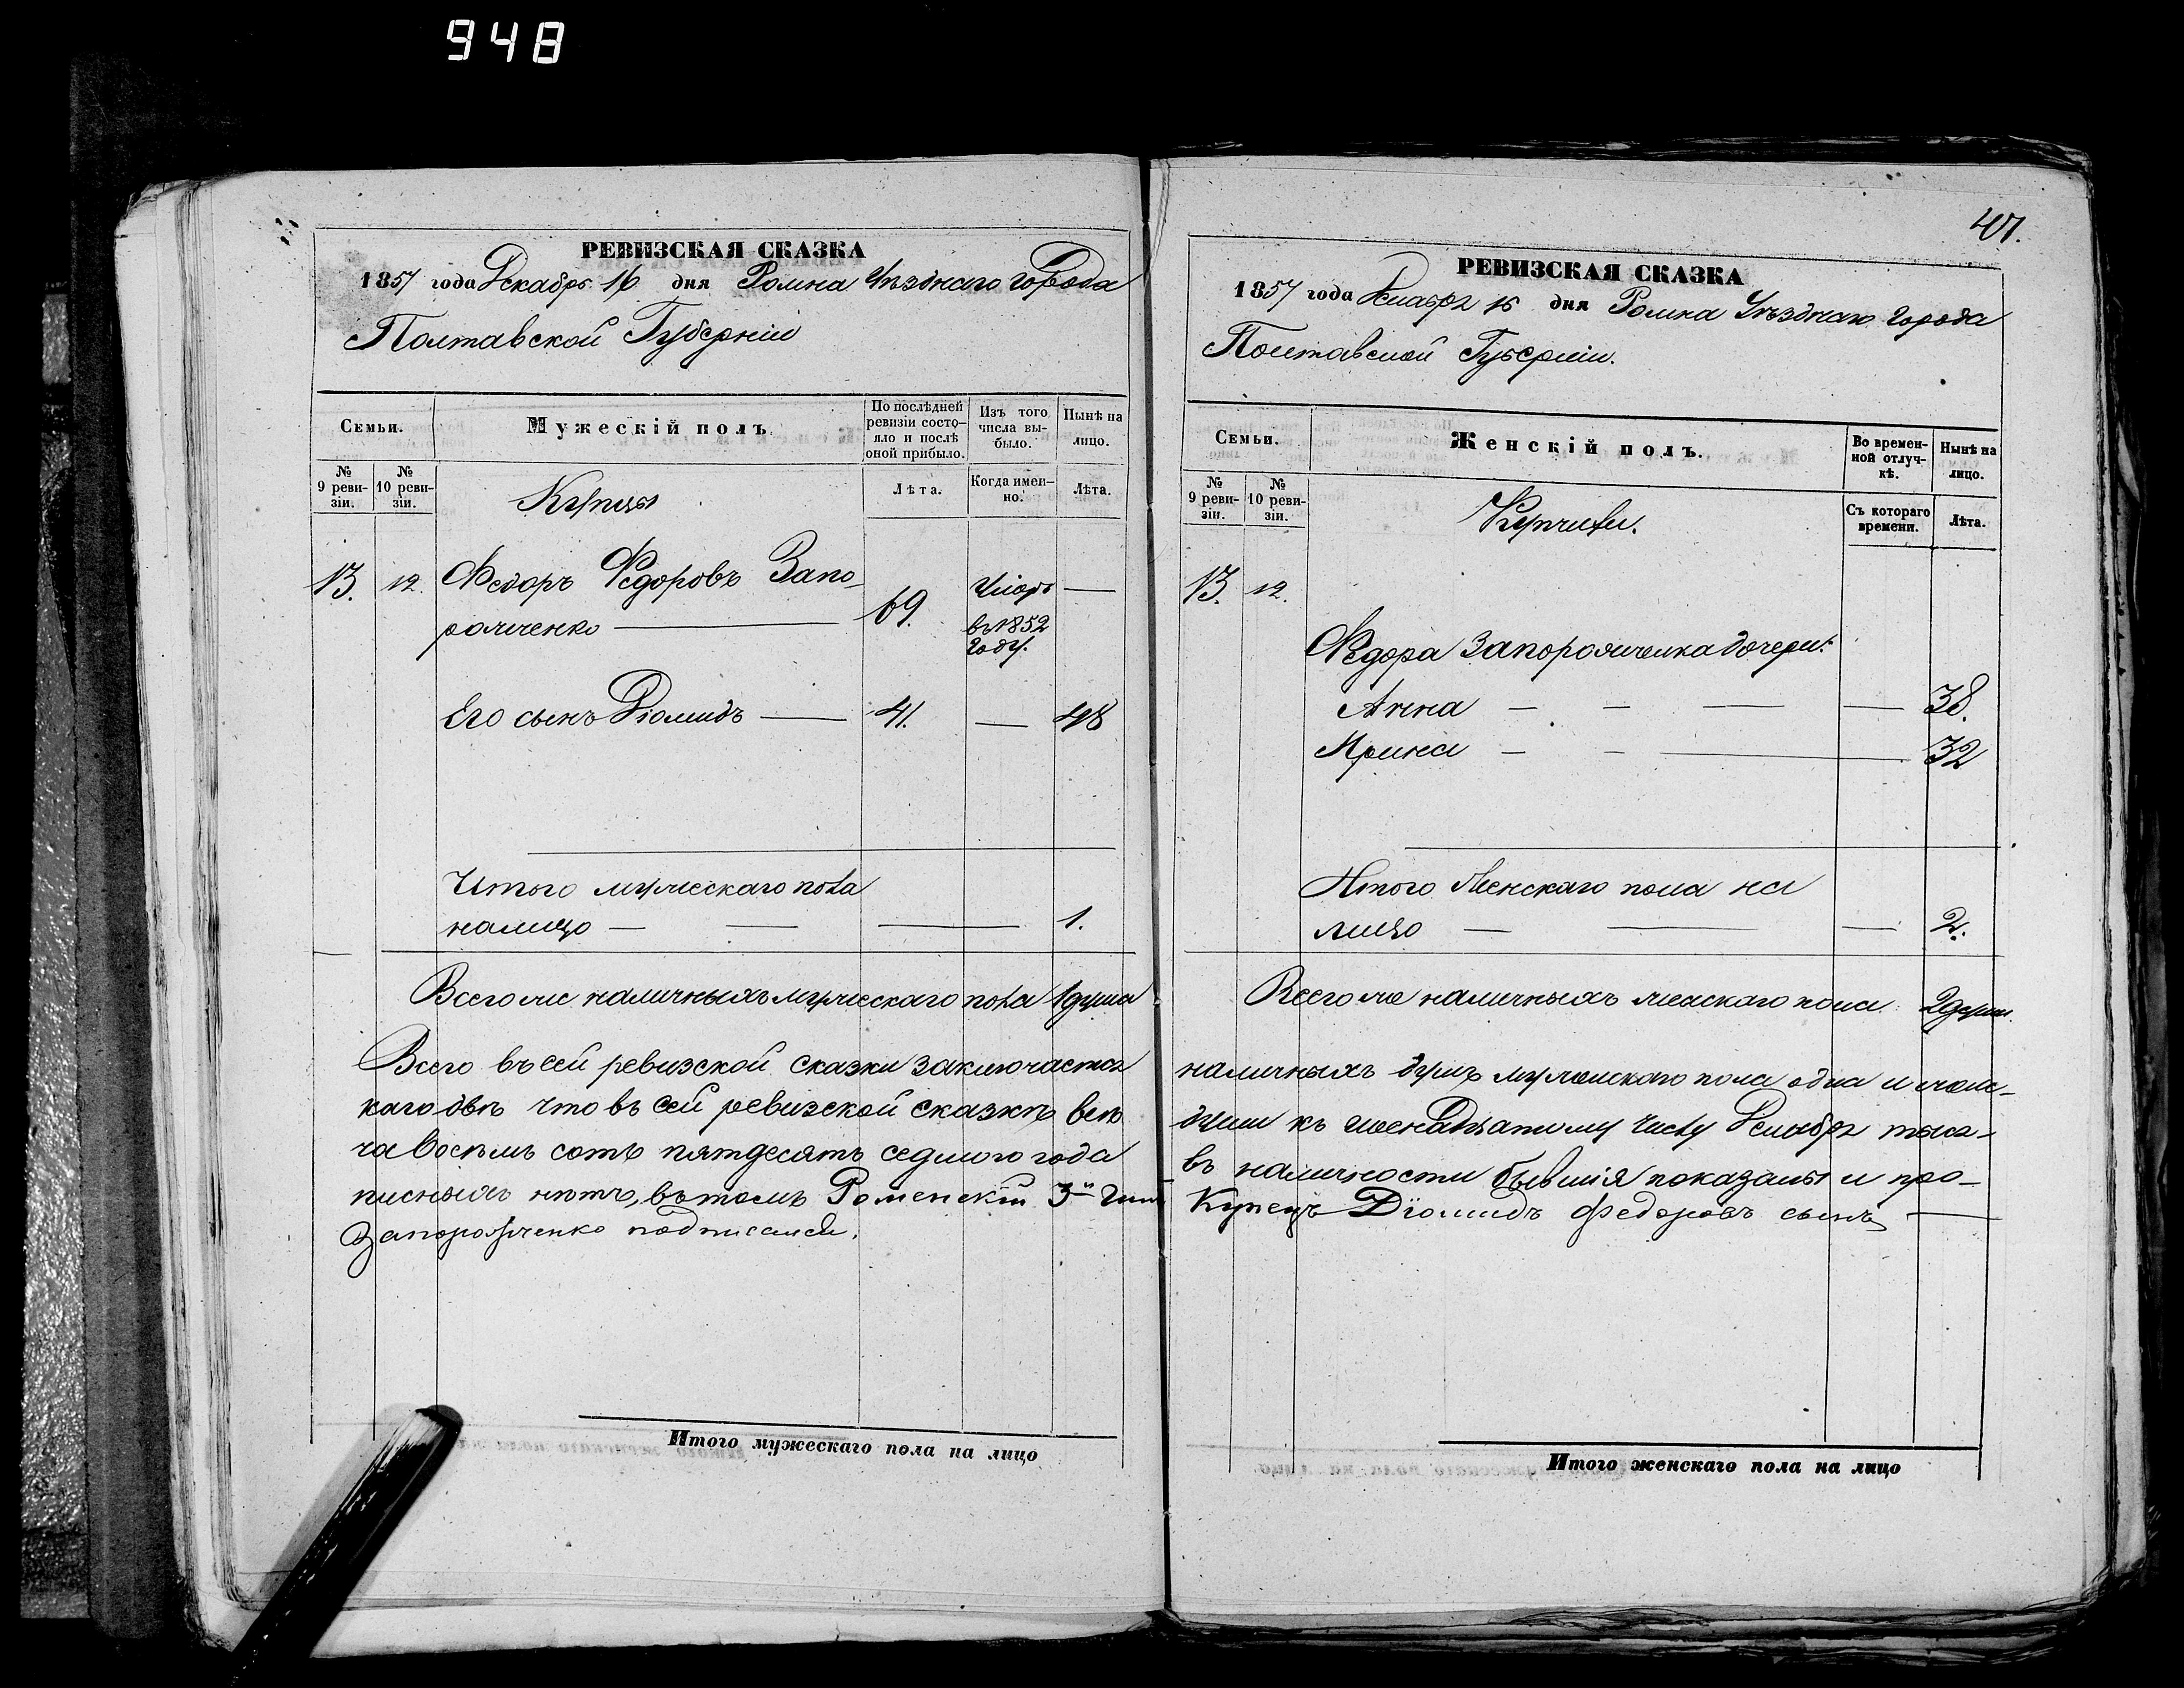 948
РЕВИЗСКАЯ СКАЗКА
1857 года Декабря 16 дня Ромна Уѣзднаго Города
Полтавской Губерніи
Семьи.
Мужескій полъ.
По послѣдней ревизіи состо-яло и послѣ оной прибыло.
Изъ того числа вы-было.
Нынѣ на лицо.
№ 9 реви-зіи.
№ 10 реви-зіи.
Лѣта.
Когда имен-но.
Лѣта.
Купцы
13. 12. Федоръ Федоровъ Запо-
рожченко 69. Умеръ въ 1852 году. —
Его сынъ Діомидъ — 41. — 48
Итого мужескаго пола
налицо — 1.
Всего же наличныхъ мужескаго пола 1 душа
Всего въ сей ревизской сказки заключается
что въ сей ревизской сказкѣ всѣ
ча восемь сотъ пятдесятъ седмого года
писныхъ нѣтъ, въ томъ Роменскій 3й
Запорожченко подписался.
Итого мужескаго пола на лицо
407.
РЕВИЗСКАЯ СКАЗКА
1857 года Декабря 16 дня Ромна Уѣзднаго Города
Полтавской Губерніи.
Семьи.
Женскій полъ.
Во времен-ной отлуч-кѣ.
Нынѣ на лицо.
№ 9 реви-зіи.
№ 10 реви-зіи.
Съ котораго времени.
Лѣта.
Купчихи.
13. 12.
Федора Запорожченка дочери:
Анна — — — — 38.
Ирина — — — 32
Итого Женскаго пола на
лицо — — — 2.
Всего же наличныхъ женскаго пола 2 души.
наличныхъ душъ мужескаго пола одна и
души къ шеснадцатому числу Декабря тыся-
въ наличности бывшія показаны и про-
Купецъ Діомидъ Федоровъ сынъ —
Итого женскаго пола на лицо